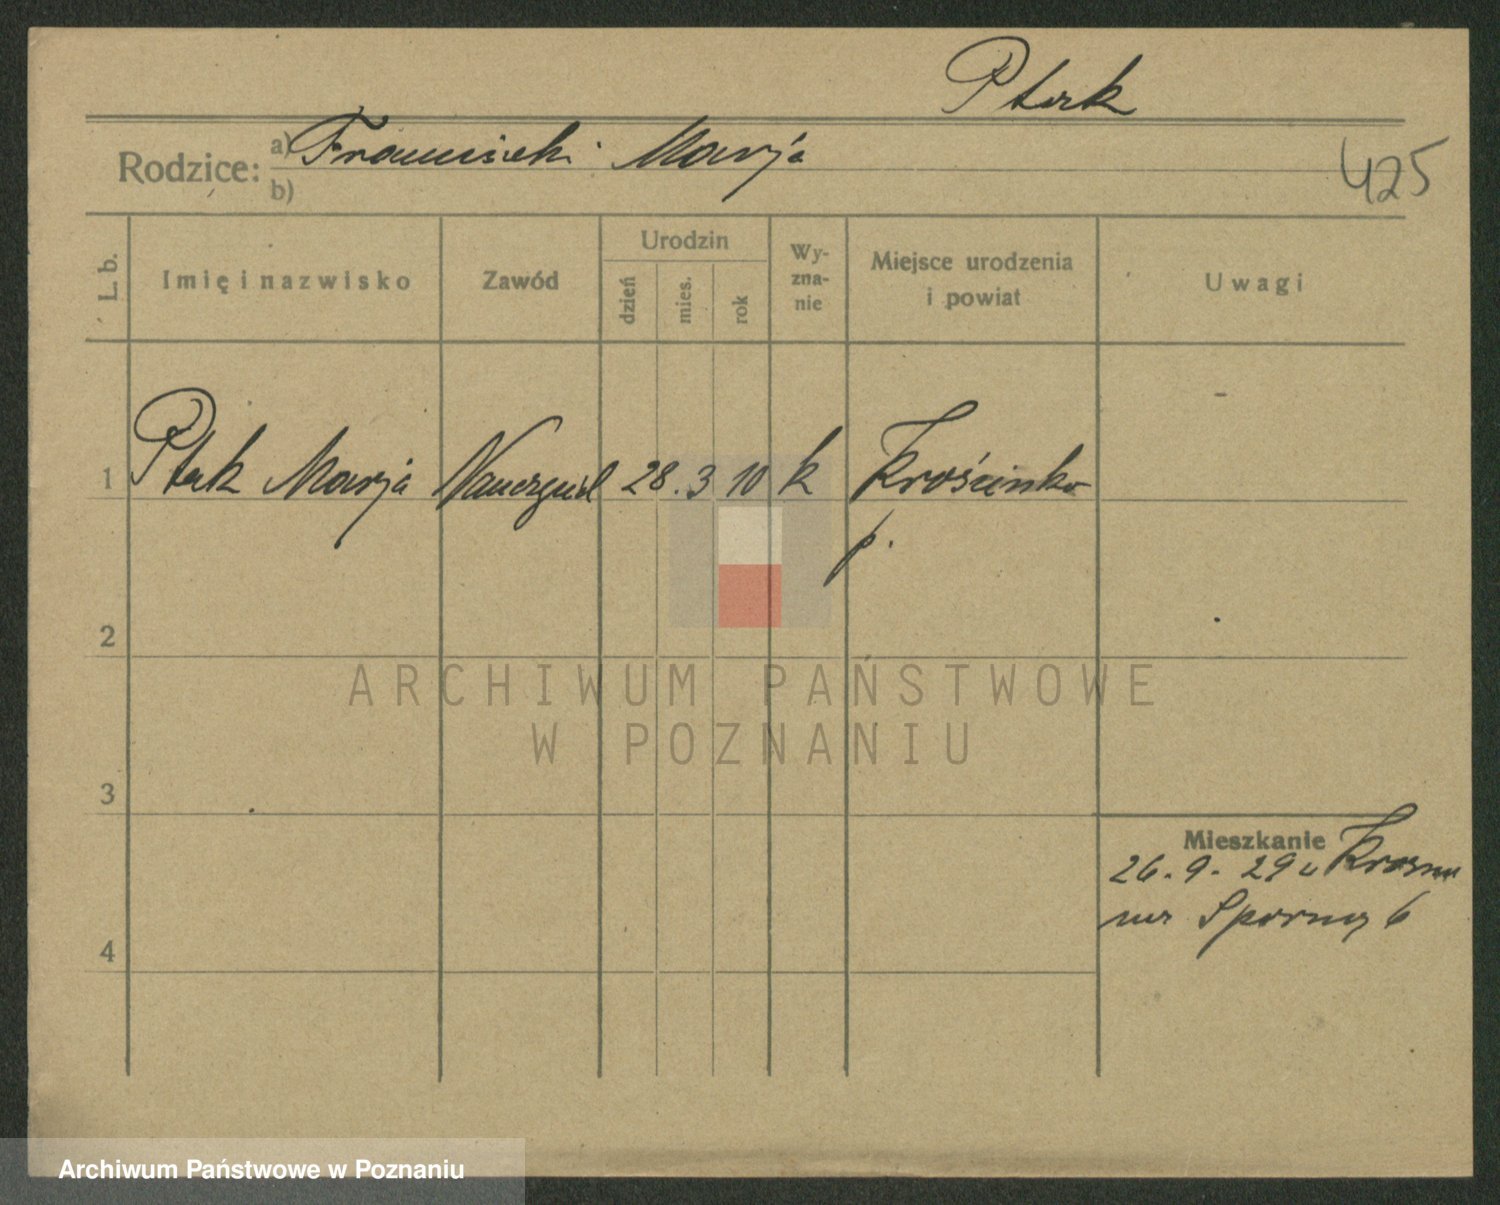 Ptak
Rodzice: a) Franciszek i Marja
b)
425
L. b.
Imię i nazwisko
Zawód
Urodzin
dzień
mies.
rok
Wy-
zna-
nie
Miejsce urodzenia
i powiat
Uwagi
1 Ptak Marja Nauczyciel 28. 3 10 k Krościenko
p.
2
3
4
Mieszkanie
26. 9. 29 z
6
ARCHIWUM PAŃSTWOWE
W POZNANIU
Archiwum Państwowe w Poznaniu